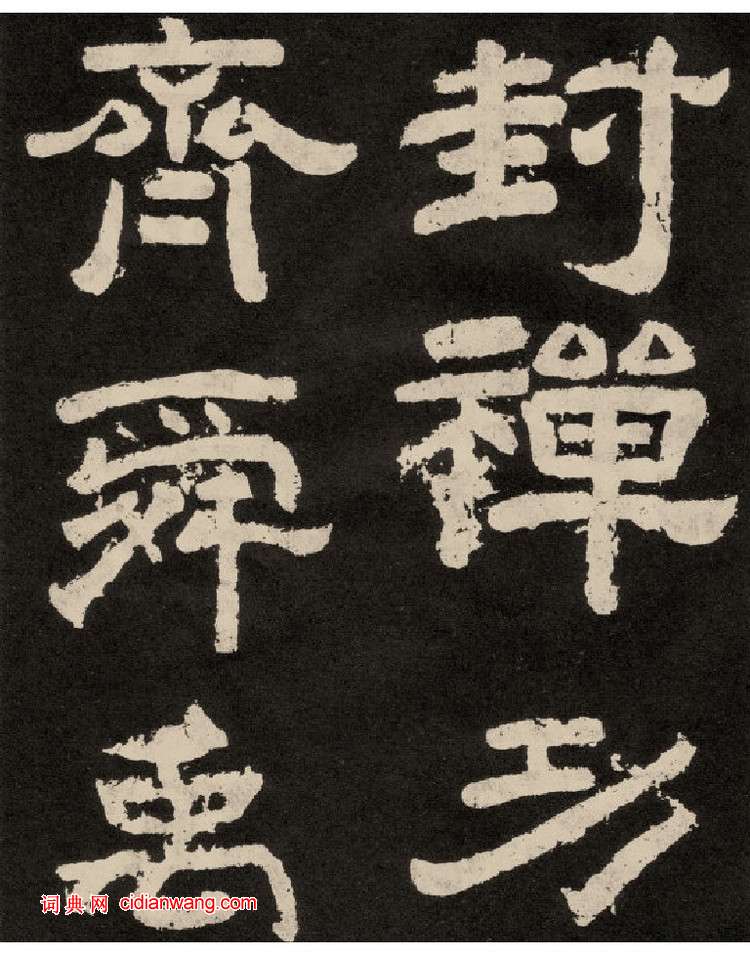 封禪功
齊舜禹
词典网 cidianwang.com